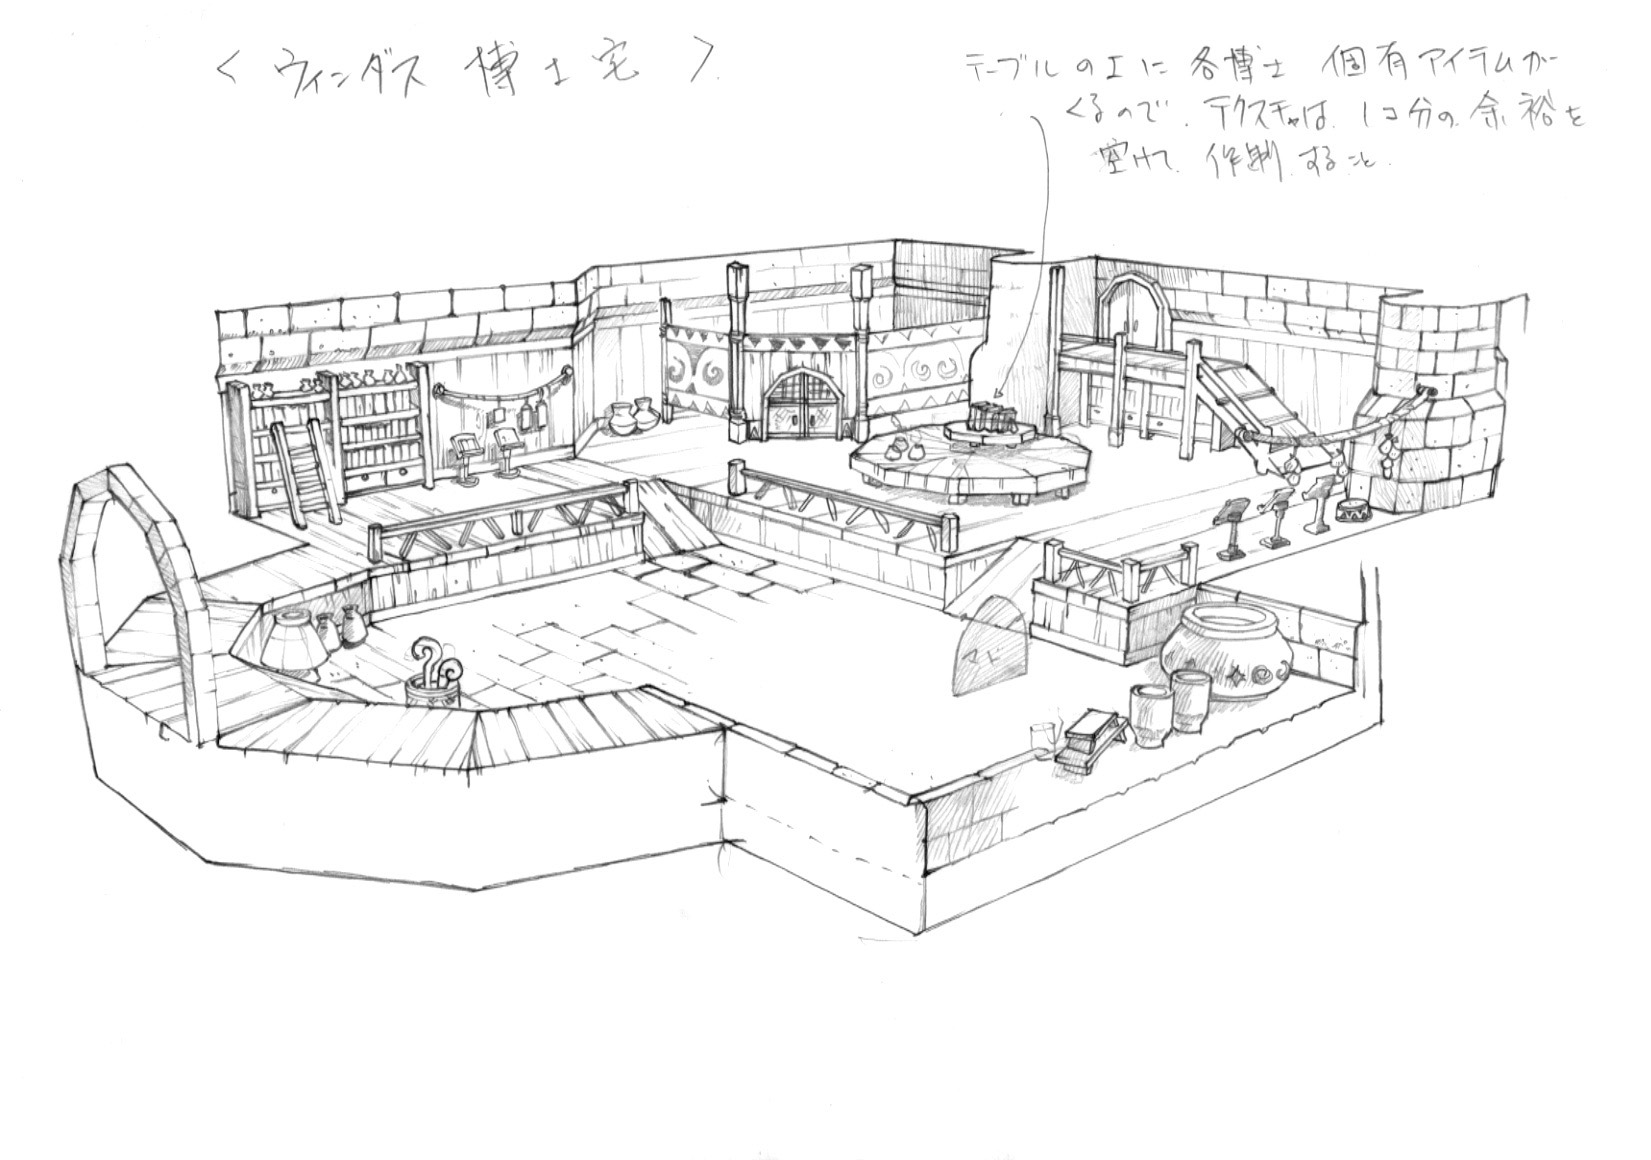 < ウィンダス 博士宅 >
テーブルの上に 各博士 個有アイテムが
くるので、テクスチャは、1コ分の余裕を
空けて 作製すること.
マド